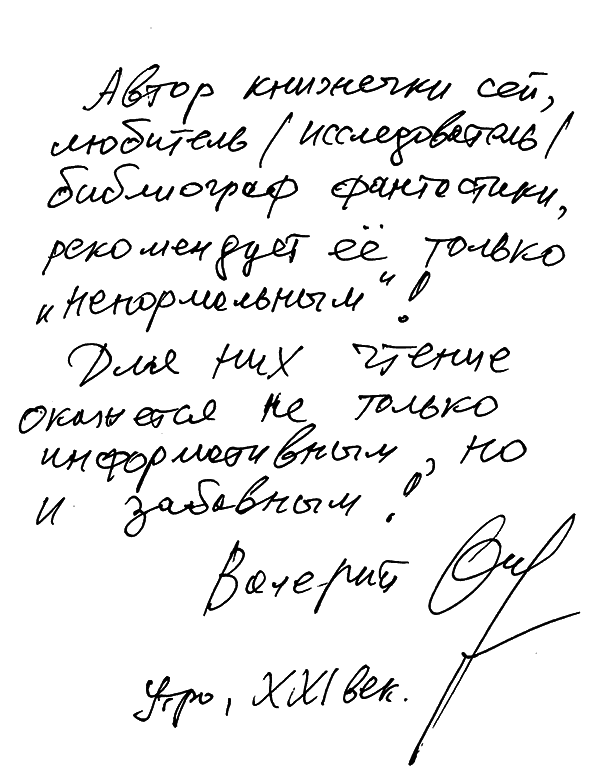 Автор книжечки сей,
любитель / исследователь /
библиограф фантастики,
рекомендует её только
„ненормальным“!
Для них чтение
окажется не только
информативным, но
и забавным!
Валерий
Утро, XXI век.